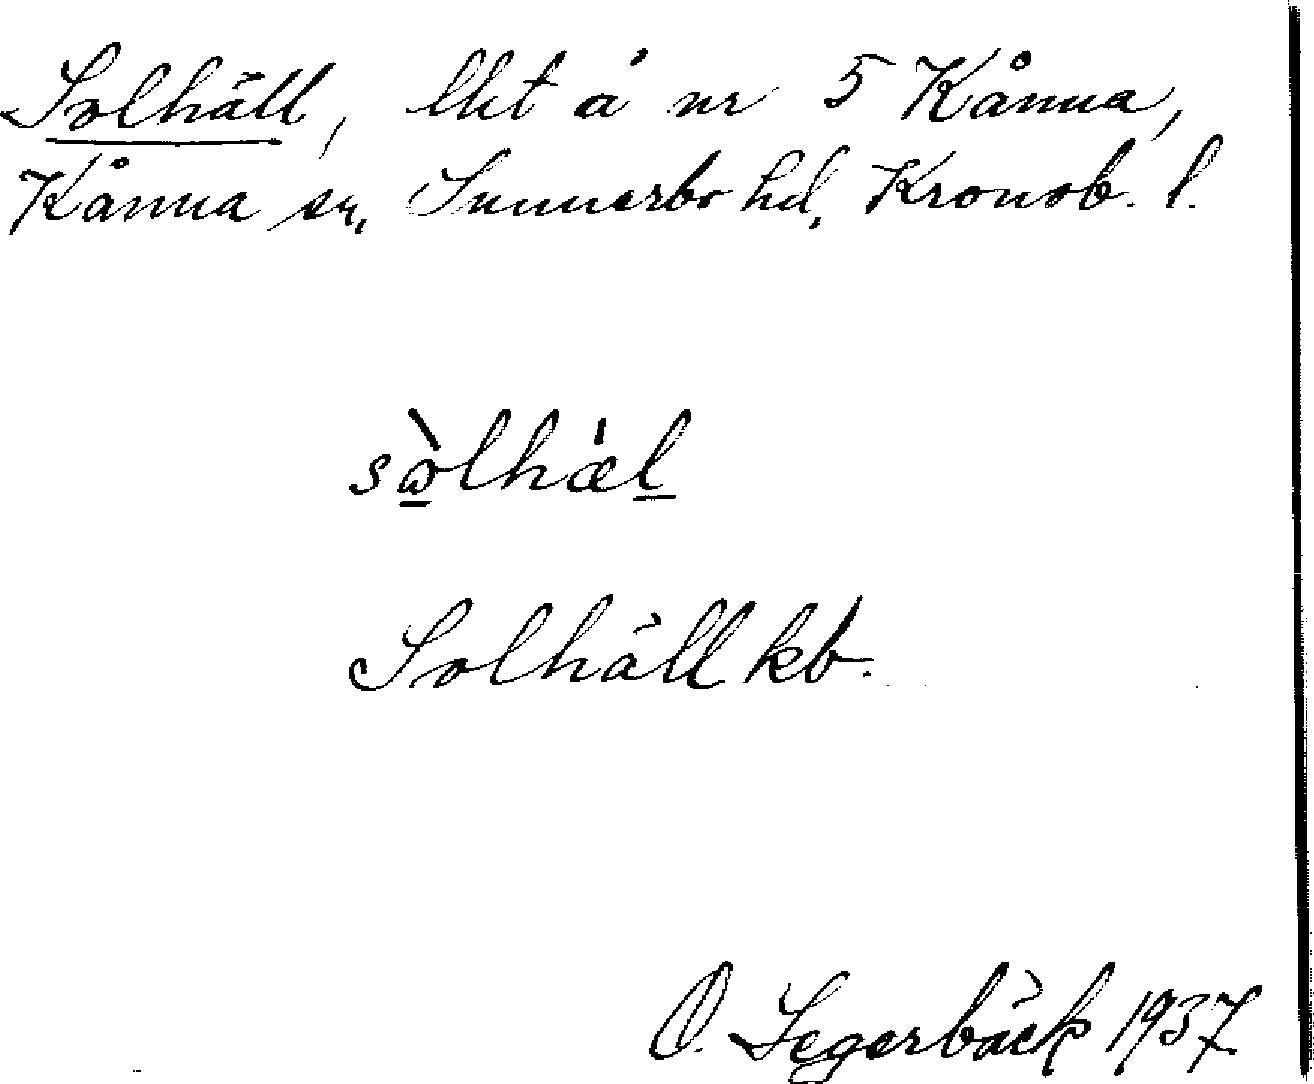 Solhäll, lht å nr 5 Kånna,
Kånna sn, Sunnerbo hd, Kronob. l.
sὼlhæ̍l
Solhäll kb.
O. Segerbäck 1937